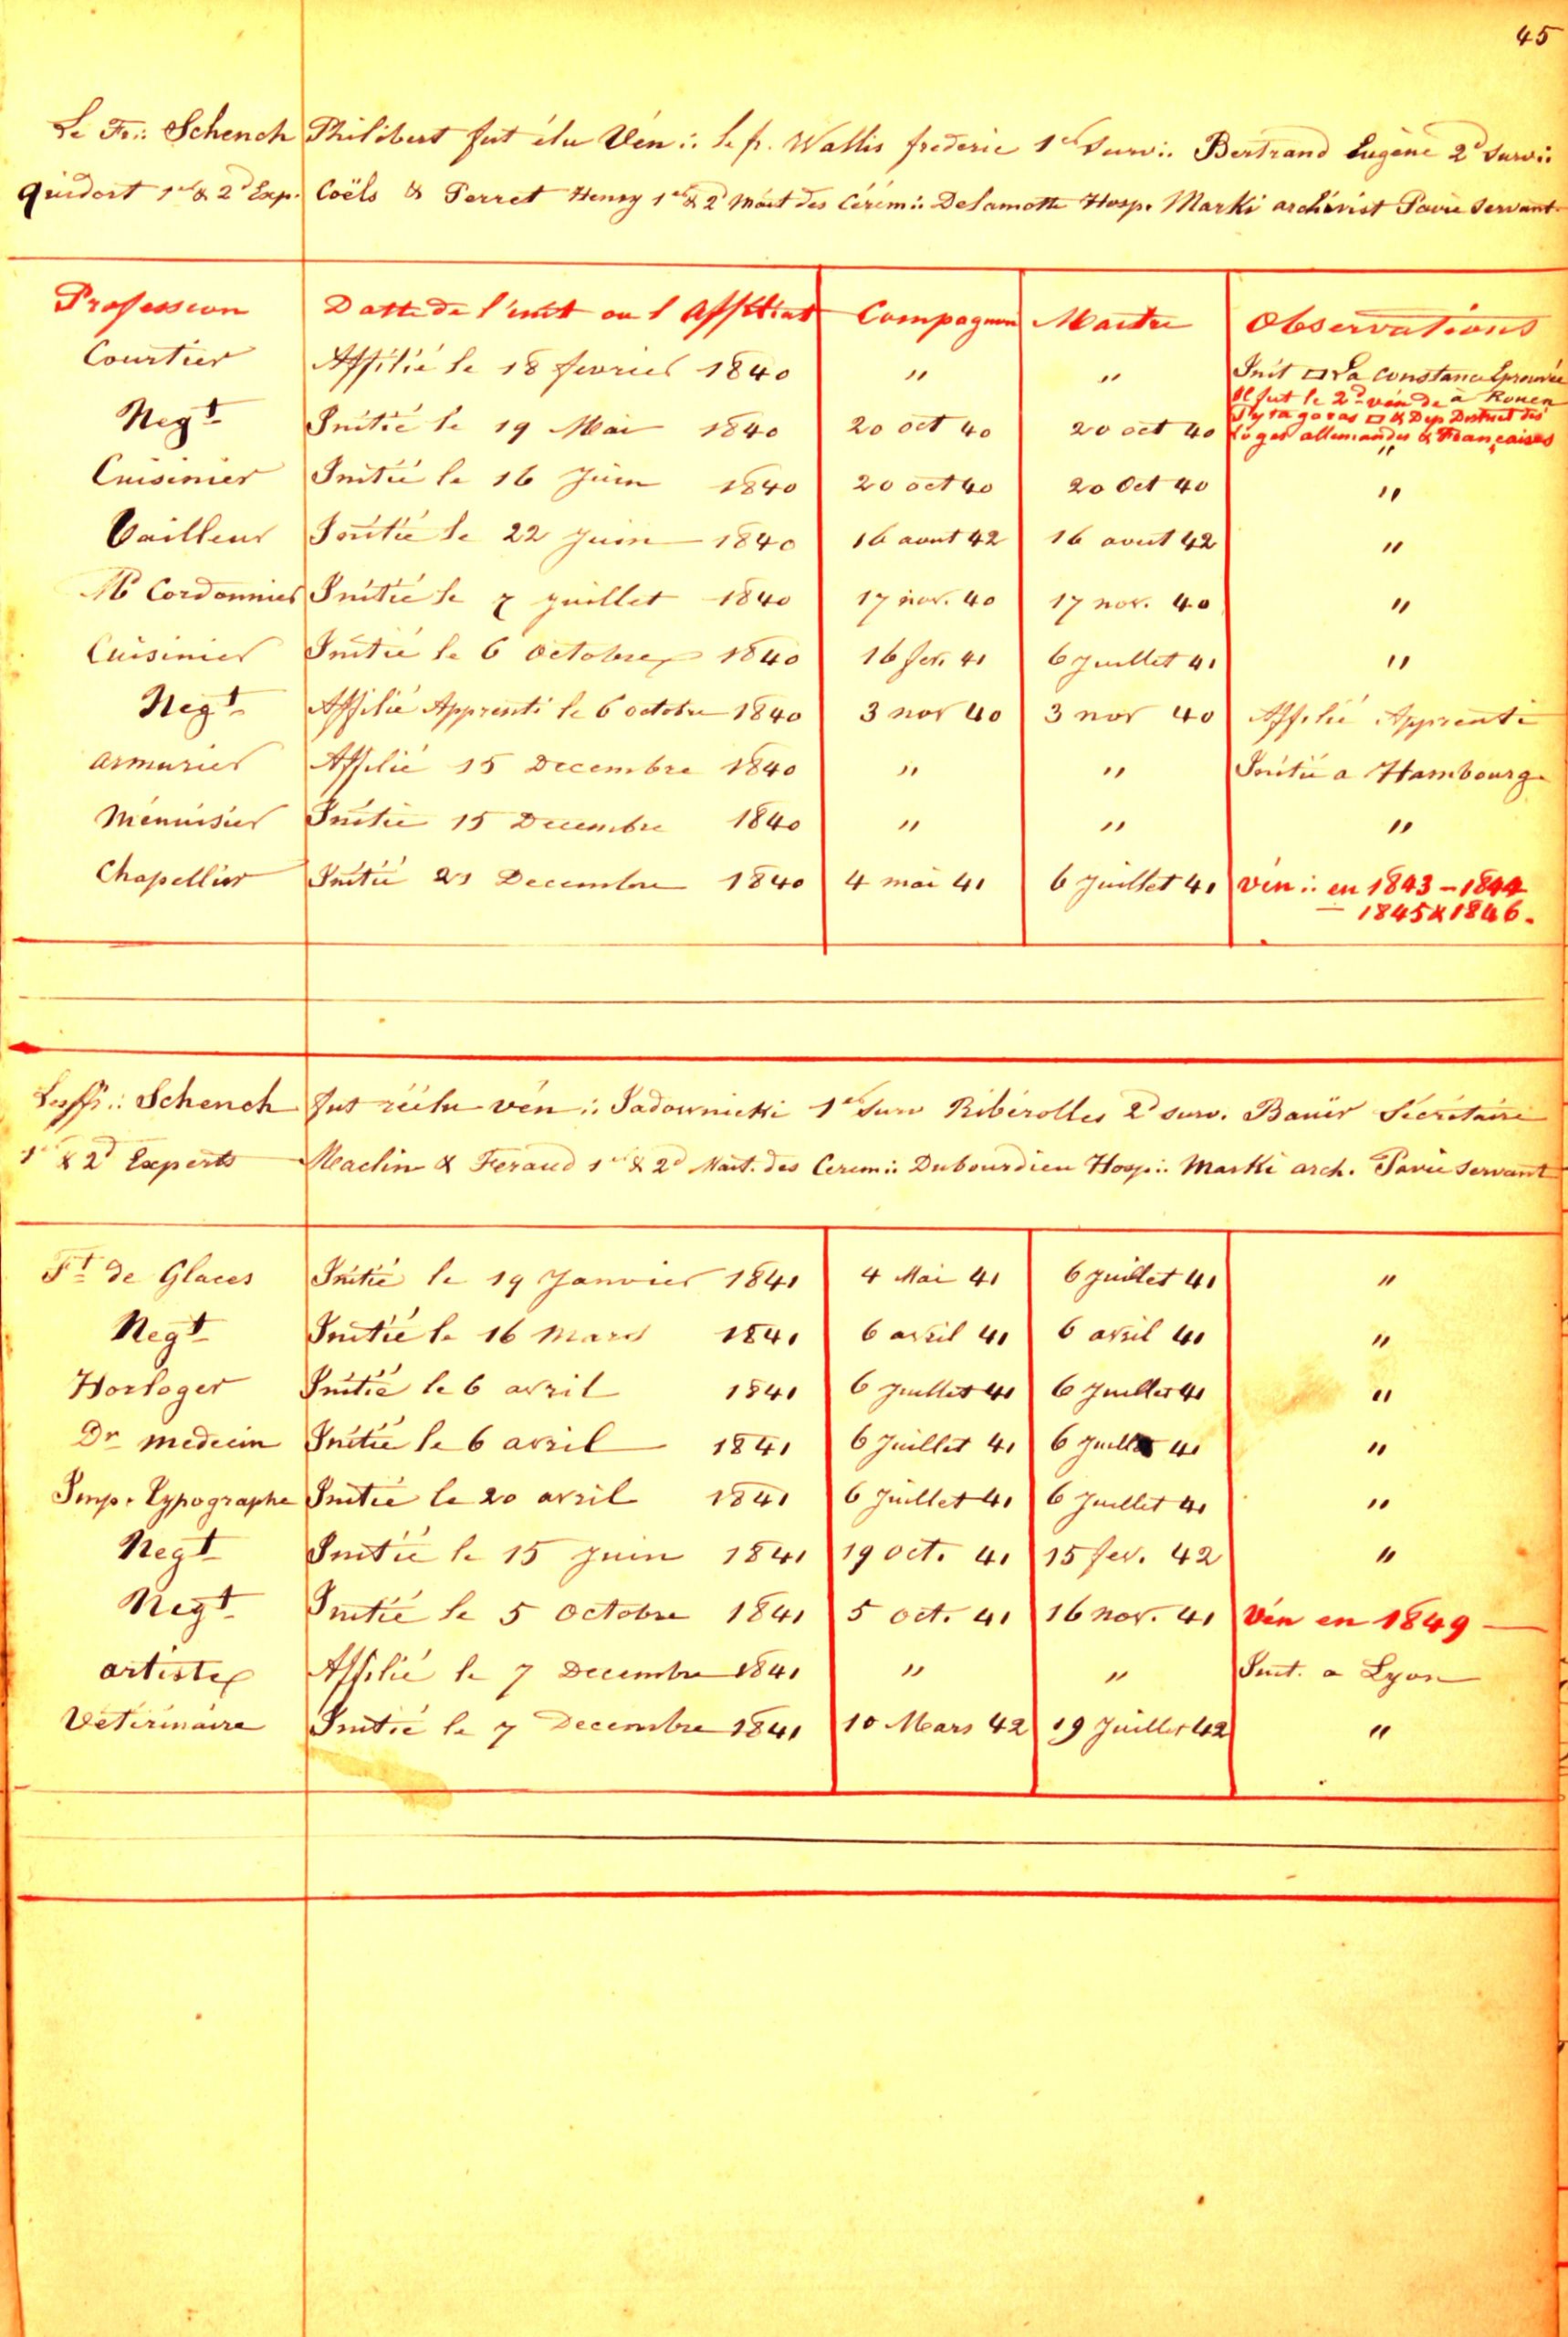 45
Le Fr∴ Schench Philibert fut élu Ven∴ le fr. Wallis frederic 1er Surv∴ Bertrand Eugène 2d Surv∴
Quidort 1er & 2d Exp. Coëls & Perret Henry 1er & 2d Mait des Cérém∴ Delamotte Hosp. Marki archivist Pavie Servant
Profession Datte de l'init ou l'Affiliat Compagnon Maitre Observations
Courtier Affilié le 18 fevrier 1840 " " Init □ La Constance Eprouvée
à Rouen
Negt Initié le 19 Mai 1840 20 oct 40 20 oct 40 Il fut le 2d ven de
Pytagoras □ & Dep District des
Loges allemandes & Françaises
"
Cuisinier Initié le 16 Juin 1840 20 oct 40 20 Oct 40 "
Tailleur Initié le 22 Juin 1840 16 aout 42 16 aout 42 "
Md Cordonnier Initié le 7 juillet 1840 17 nov. 40 17 nov. 40 "
Cuisinier Initié le 6 Octobre 1840 16 fev. 41 6 Juillet 41 "
Negt Affilié Apprenti le 6 octobre 1840 3 nov 40 3 nov 40 Affilié Apprenti
armurier Affilié 15 Decembre 1840 " " Initié a Hambourg
Menuisier Initié 15 Decembre 1840 " " "
Chapellier Initié 21 Decembre 1840 4 mai 41 6 Juillet 41 Vén∴ en 1843 – 1844
– 1845 & 1846.
Les ff∴ Schench fut réélu vén∴ Sadownicki 1er Surv Ribérolles 2d surv. Bauër Secrétaire
1er & 2d Experts Maclin & Feraud 1er & 2d Mait. des Cerem∴ Dubourdieu Hosp∴ Marki arch. Pavie Servant
Ft de Glaces Initié le 19 Janvier 1841 4 Mai 41 6 Juillet 41 "
Negt Initié le 16 Mars 1841 6 avril 41 6 avril 41 "
Horloger Initié le 6 avril 1841 6 Juillet 41 6 Juillet 41 "
Dr medecin Initié le 6 avril 1841 6 Juillet 41 6 Juillet 41 "
Imp. Typographe Initié le 20 avril 1841 6 Juillet 41 6 Juillet 41 "
Negt Initié le 15 Juin 1841 19 oct. 41 15 fev. 42 "
Negt Initié le 5 Octobre 1841 5 oct. 41 16 nov. 41 Vén en 1849
artiste Affilié le 7 Decembre 1841 " " Init. a Lyon
Vétérinaire Initié le 7 Decembre 1841 10 Mars 42 19 Juillet 42 "